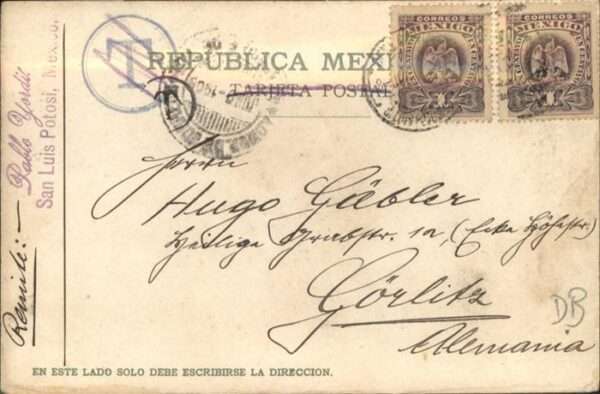 T
REPUBLICA MEXI
TARJETA POSTAL
T
CORREOS
MEXICO
1 1
CORREOS
MEXICO
1 1
Remite: —
Pablo
San Luis Potosi, Mexico.
Herrn
Hugo Gäbler
Heilige Grabstr. 1a, (Ecke Höhestr.)
Görlitz
Alemania
DB
EN ESTE LADO SOLO DEBE ESCRIBIRSE LA DIRECCION.